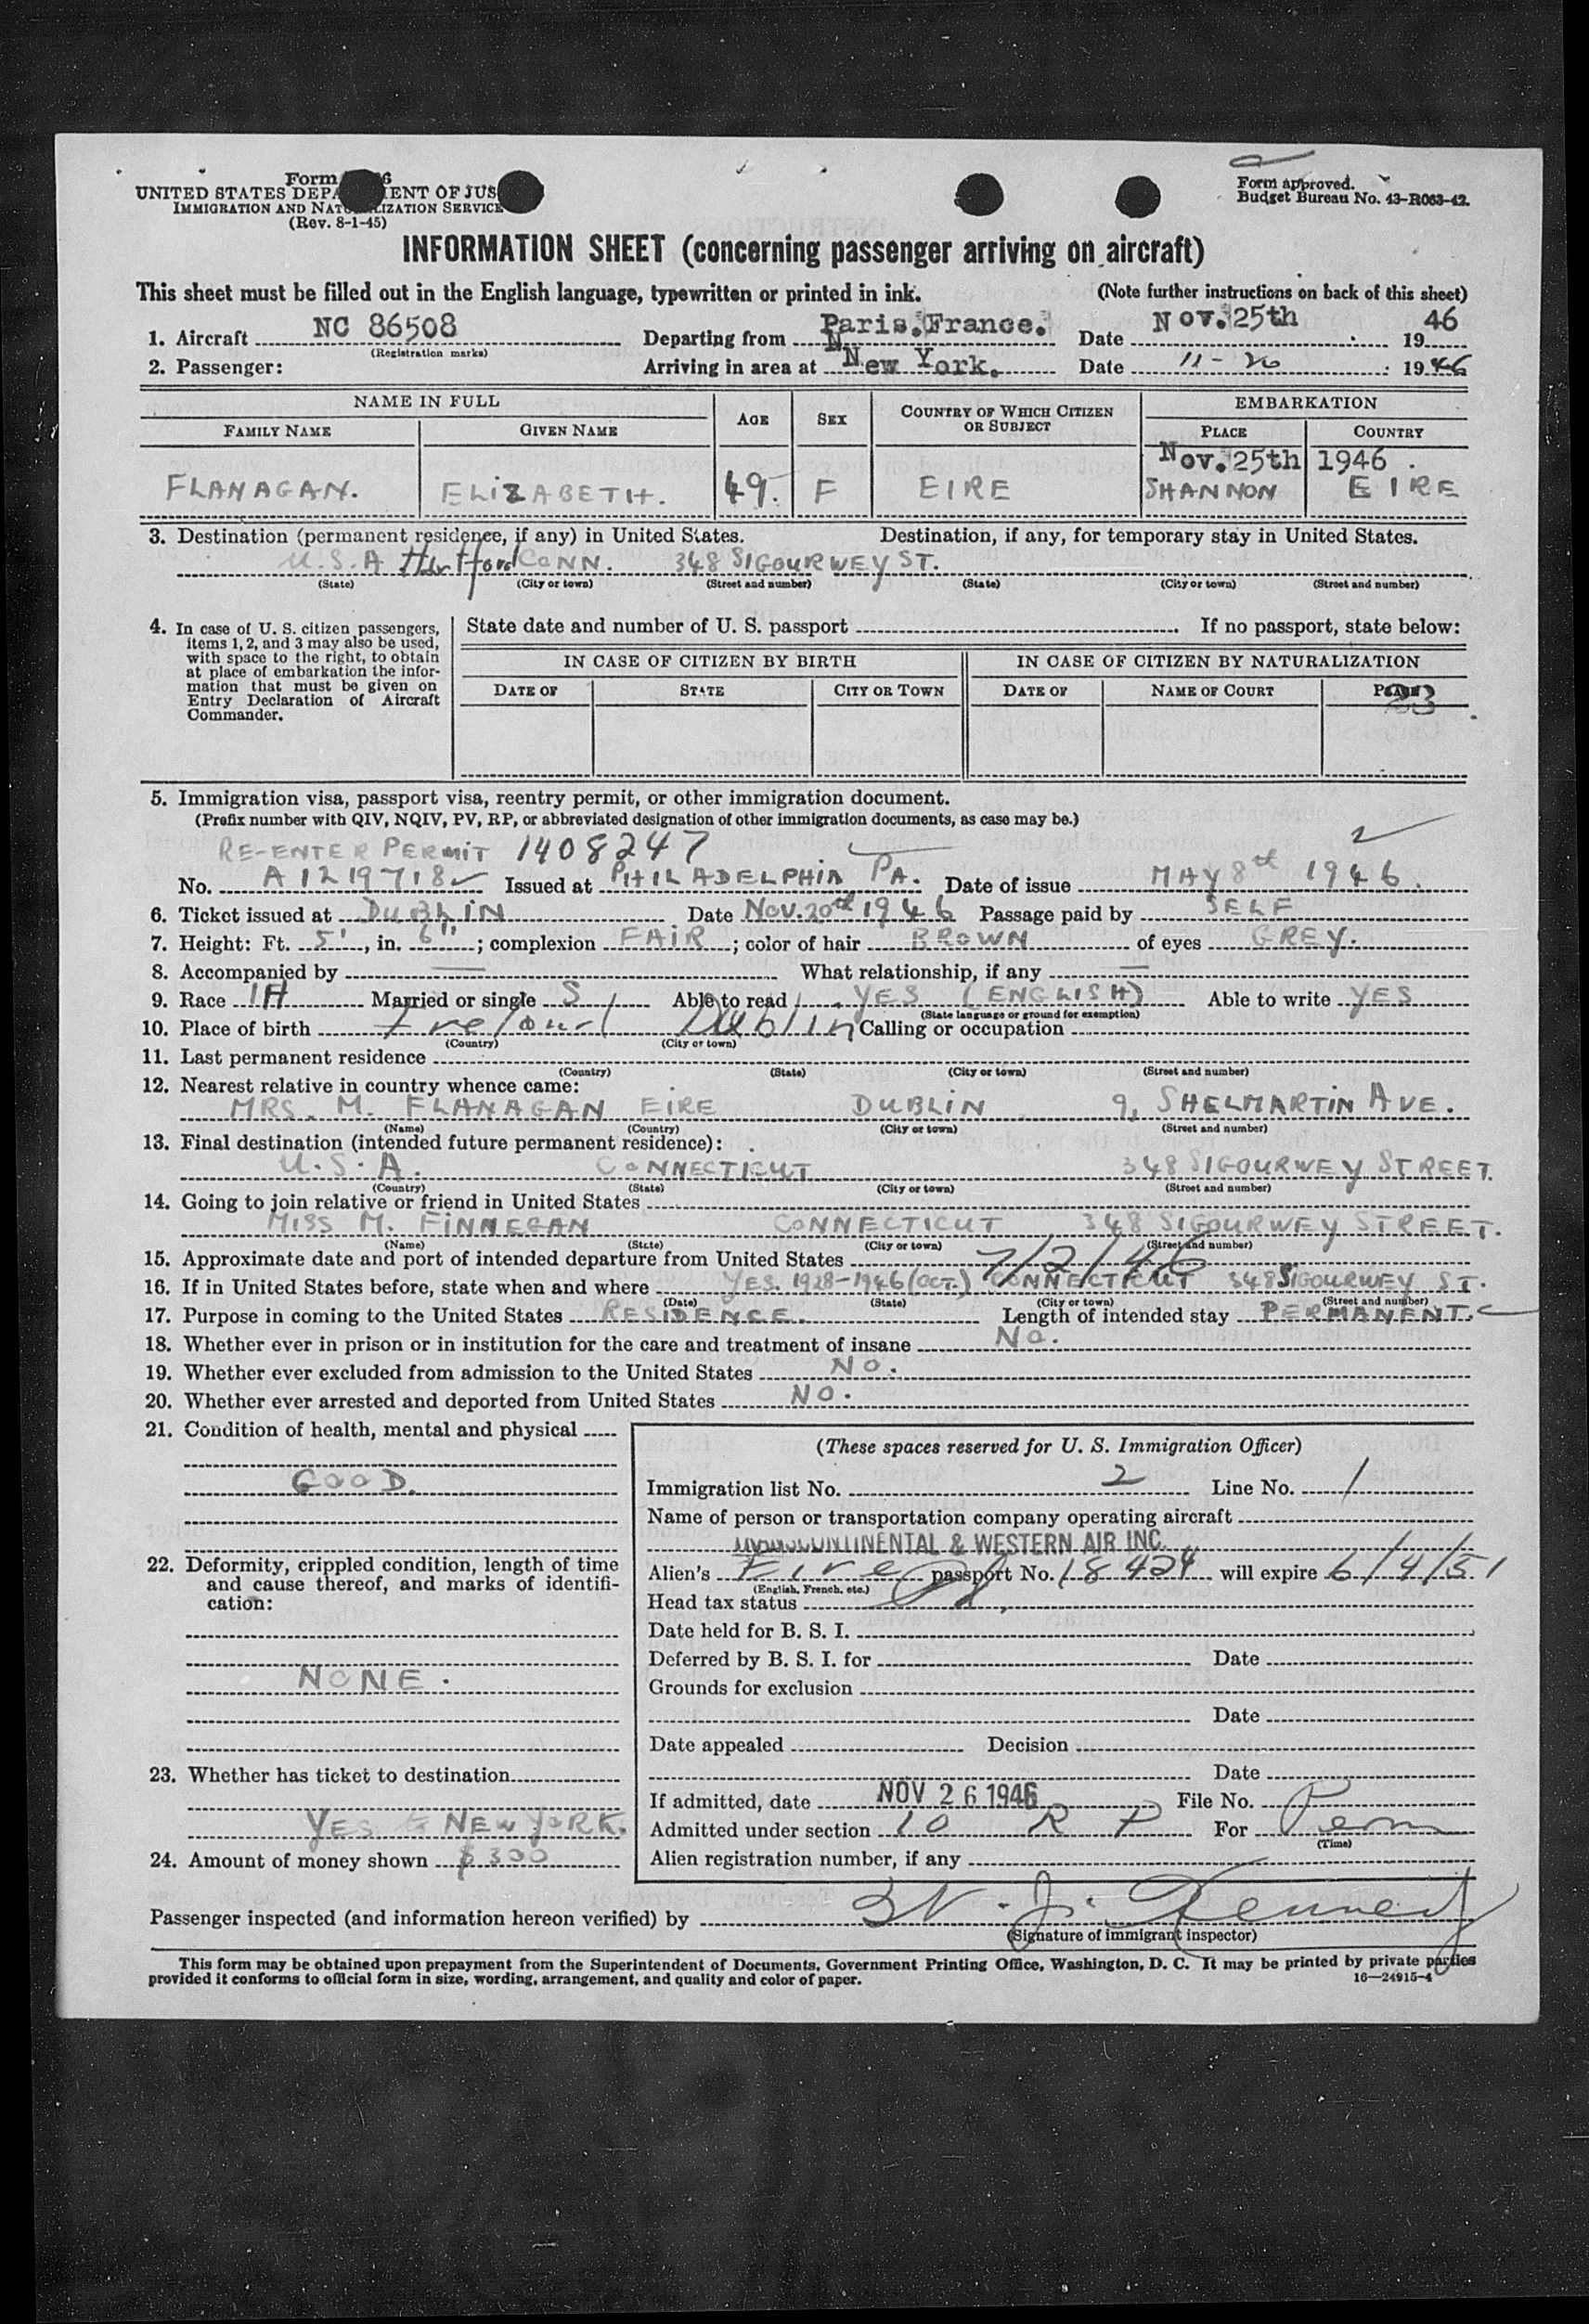 Form 6
UNITED STATES DEPA ENT OF JUS
IMMIGRATION AND NAT IZATION SERVICE
(Rev. 8-1-45)
Form approved.
Budget Bureau No. 43-R063-42.
INFORMATION SHEET (concerning passenger arriving on aircraft)
This sheet must be filled out in the English language, typewritten or printed in ink. (Note further instructions on back of this sheet)
1. Aircraft NC 86508 Departing from Paris. France. Date Nov. 25th 1946
(Registration marks)
2. Passenger: Arriving in area at New York. Date 11-26 1946
NAME IN FULL AGE SEX COUNTRY OF WHICH CITIZEN OR SUBJECT EMBARKATION
FAMILY NAME GIVEN NAME PLACE COUNTRY
Nov. 25th 1946.
FLANAGAN. ELIZABETH. 49. F EIRE SHANNON EIRE
3. Destination (permanent residence, if any) in United States. Destination, if any, for temporary stay in United States.
U.S.A Hartford CONN. 348 SIGOURWEY ST.
(State) (City or town) (Street and number) (State) (City or town) (Street and number)
4. In case of U. S. citizen passengers, items 1, 2, and 3 may also be used, with space to the right, to obtain at place of embarkation the information that must be given on Entry Declaration of Aircraft Commander.
State date and number of U. S. passport If no passport, state below:
IN CASE OF CITIZEN BY BIRTH IN CASE OF CITIZEN BY NATURALIZATION
DATE OF STATE CITY OR TOWN DATE OF NAME OF COURT
23
5. Immigration visa, passport visa, reentry permit, or other immigration document.
(Prefix number with QIV, NQIV, PV, RP, or abbreviated designation of other immigration documents, as case may be.)
RE-ENTER PERMIT 1408247
No. A1219718 Issued at PHILADELPHIA PA. Date of issue MAY 8th 1946.
6. Ticket issued at DUBLIN Date NOV. 20th 1946 Passage paid by SELF
7. Height: Ft. 5', in. 6"; complexion FAIR; color of hair BROWN of eyes GREY.
8. Accompanied by — What relationship, if any —
9. Race IH Married or single S Able to read YES (ENGLISH) Able to write YES
(State language or ground for exemption)
10. Place of birth Ireland Dublin Calling or occupation
(Country) (City or town)
11. Last permanent residence
(Country) (State) (City or town) (Street and number)
12. Nearest relative in country whence came:
MRS. M. FLANAGAN EIRE DUBLIN 9, SHELMARTIN AVE.
(Name) (Country) (City or town) (Street and number)
13. Final destination (intended future permanent residence):
U.S.A. CONNECTICUT 348 SIGOURWEY STREET.
(Country) (State) (City or town) (Street and number)
14. Going to join relative or friend in United States
MISS M. FINNEGAN CONNECTICUT 348 SIGOURWEY STREET.
(Name) (State) (City or town) (Street and number)
15. Approximate date and port of intended departure from United States 7/2/46
16. If in United States before, state when and where YES. 1928-1946 (OCT.) CONNECTICUT 348 SIGOURWEY ST.
(Date) (State) (City or town) (Street and number)
17. Purpose in coming to the United States RESIDENCE. Length of intended stay PERMANENT.
18. Whether ever in prison or in institution for the care and treatment of insane No.
19. Whether ever excluded from admission to the United States NO.
20. Whether ever arrested and deported from United States NO.
21. Condition of health, mental and physical
GOOD.
22. Deformity, crippled condition, length of time and cause thereof, and marks of identification:
NONE.
23. Whether has ticket to destination
YES NEW YORK.
24. Amount of money shown $300
(These spaces reserved for U. S. Immigration Officer)
Immigration list No. 2 Line No. 1
Name of person or transportation company operating aircraft
CONTINENTAL & WESTERN AIR INC.
Alien's Eire passport No. 18424 will expire 6/4/51
(English, French, etc.)
Head tax status
Date held for B. S. I.
Deferred by B. S. I. for Date
Grounds for exclusion
Date
Date appealed Decision
Date
If admitted, date NOV 26 1946 File No.
Admitted under section 10 R P For Perm
(Time)
Alien registration number, if any
Passenger inspected (and information hereon verified) by J. Kennedy
(Signature of immigrant inspector)
This form may be obtained upon prepayment from the Superintendent of Documents, Government Printing Office, Washington, D. C. It may be printed by private parties
provided it conforms to official form in size, wording, arrangement, and quality and color of paper. 16—24915-4